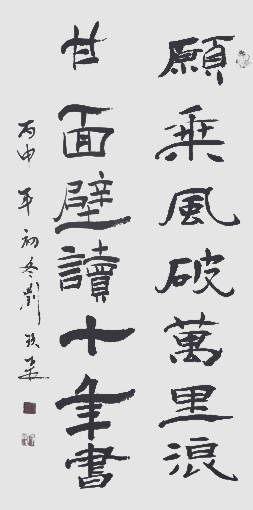 願乗風破萬里浪
甘面壁讀十年書
丙申年初冬劉